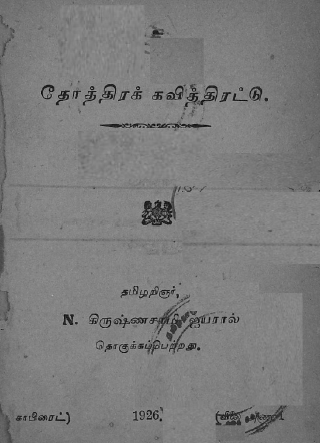 தோத்திரக் கவித்திரட்டு.
தமிழறிஞர்,
N. கிருஷ்ணசாமி ஐயரால்
தொகுக்கப்பெற்றது.
காபிரைட்) 1926.